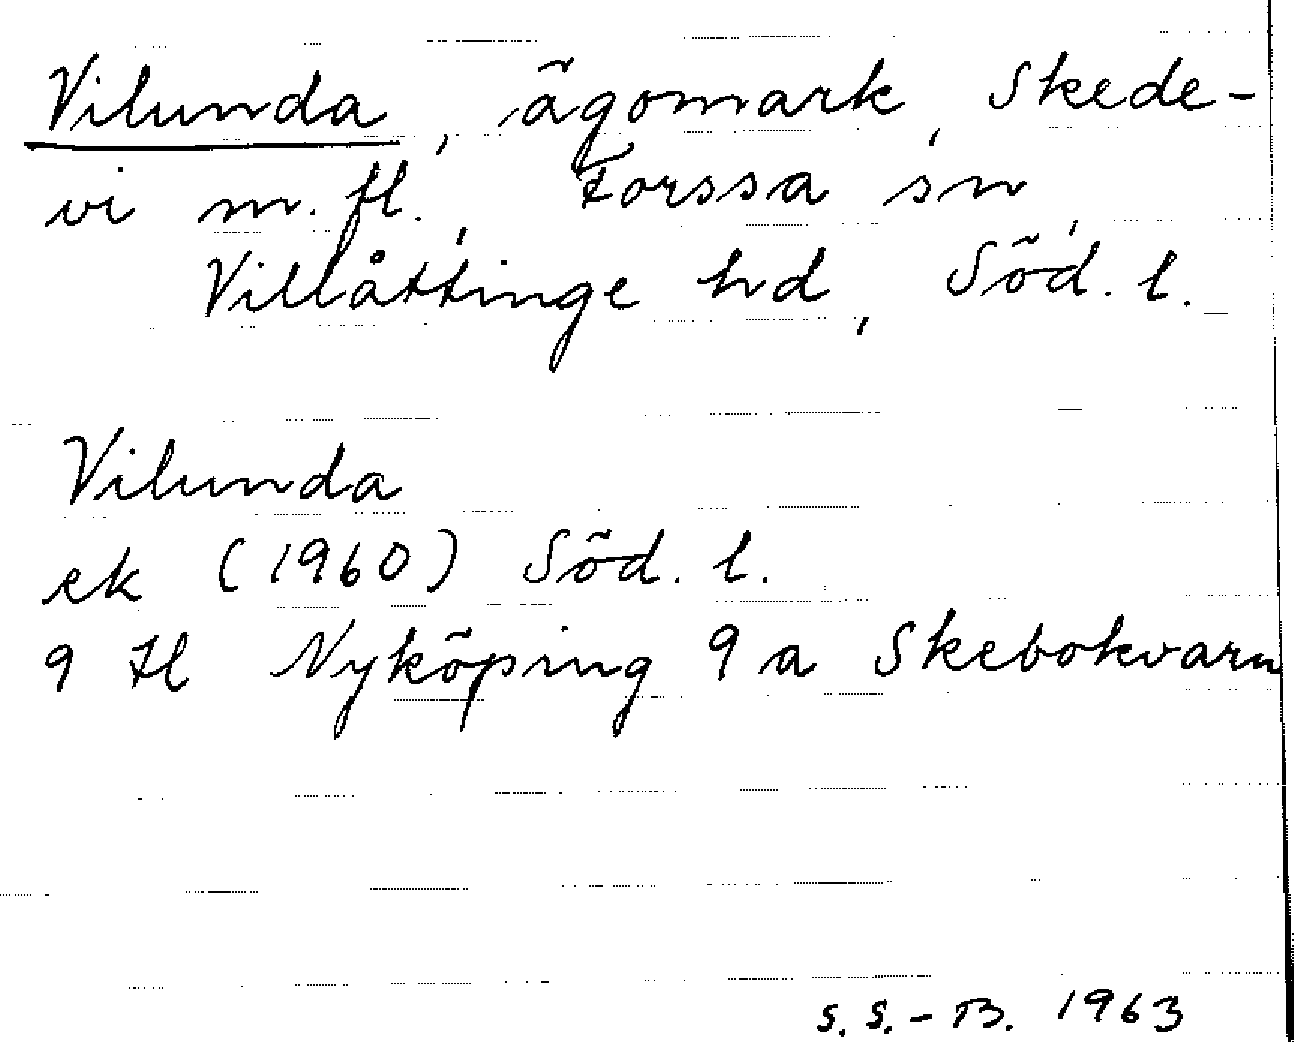 Vilunda, ägomark, Skede-
vi m. fl., Forssa sn,
Villåttinge hd, Söd. l.
Vilunda
ek (1960) Söd. l.
9 H Nyköping 9 a Skebokvarn
S. S.-B. 1963